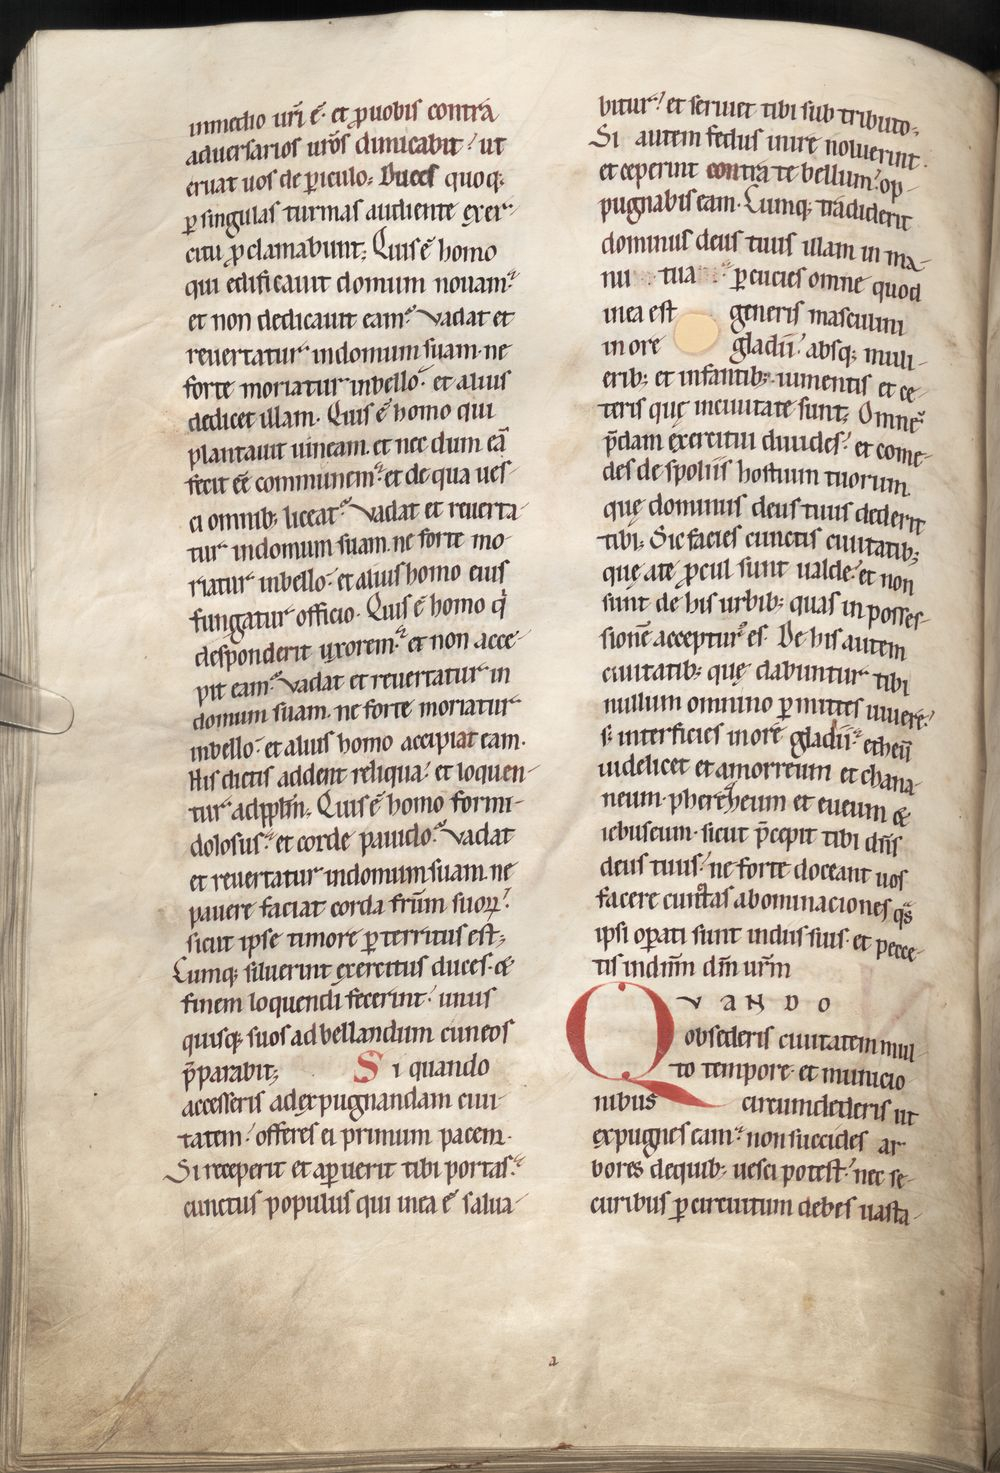 inmedio ur̄i ē· et ꝓuobis contra
aduersarios urōs dimicabit· ut
eruat uos de ꝑiculo; Duces quoq;
ꝑ singulas turmas audiente exer-
citu ꝓclamabunt; Quis ē homo
qui edificauit domum nouam·
et non dedicauit eam? Vadat et
reuertatur indomum suam· ne
forte moriatur inbello· et alius
dedicet illam. Quis ē homo qui
plantauit uineam· et nec dum eā
fecit eē communem· et de qua ues-
ci omnib; liceat? Vadat et reuerta-
tur indomum suam· ne forte mo-
riatur inbello· et alius homo eius
fungatur officio. Quis ē homo qi
desponderit uxorem· et non acce-
pit eam? Vadat et reuertatur in
domum suam· ne forte moriatur
inbello· et alius homo accipiat eam.
His dictis addent reliqua· et loquen-
tur adpplm̄. Quis ē homo formi-
dolosus· et corde pauido? Vadat
et reuertatur indomum suam· ne
pauere faciat corda fr̄um suoꝝ·
sicut ipse timore ꝑterritus est;
Cumq; siluerint exercitus duces· &
finem loquendi fecerint· unus
quisq; suos ad bellandum cuneos
p̄parabit; Si quando
accesseris adexpugnandam ciui-
tatem· offeres ei primum pacem.
Si receperit et apuerit tibi portas·
cunctus populus qui inea ē salua-
bitur· et seruiet tibi sub tributo;
Si autem fedus inire noluerint·
et ceperint contra te bellum· op-
pugnabis eam. Cumq; tradiderit
dominus deus tuus illam in ma-
nu tua ꝑcucies omne quod
inea est generis masculini
in ore gladii· absq; muli-
erib; et infantib;· iumentis et ce-
teris quę inciuitate sunt; Omnē
p̄dam exercitui diuides· et come-
des de spoliis hostium tuorum
quę dominus deus tuus dederit
tibi; Sic facies cunctis ciuitatib;
quę ate ꝓcul sunt ualde· et non
sunt de his urbib; quas in posses-
sionē accepturꝰ es. De his autem
ciuitatib; quę dabuntur tibi
nullum omnino ꝑmittes uiuere·
s; interficies inore gladii· etheū
uidelicet et amorreum et chana-
neum· pherezheum et eueum &
iebuseum· sicut p̄cepit tibi dn̄s
deus tuus· ne forte doceant uos
facere cunctas abominaciones qas
ipsi oꝑati sunt indiis suis· et pecce-
tis indn̄m dm̄ urm̄
QVANDO
obsederis ciuitatem mul-
to tempore· et municio
nibus circumdederis ut
expugnes eam· non succides ar
bores dequib; uesci potest· nec se-
curibus ꝑ circuitum debes uasta-
a